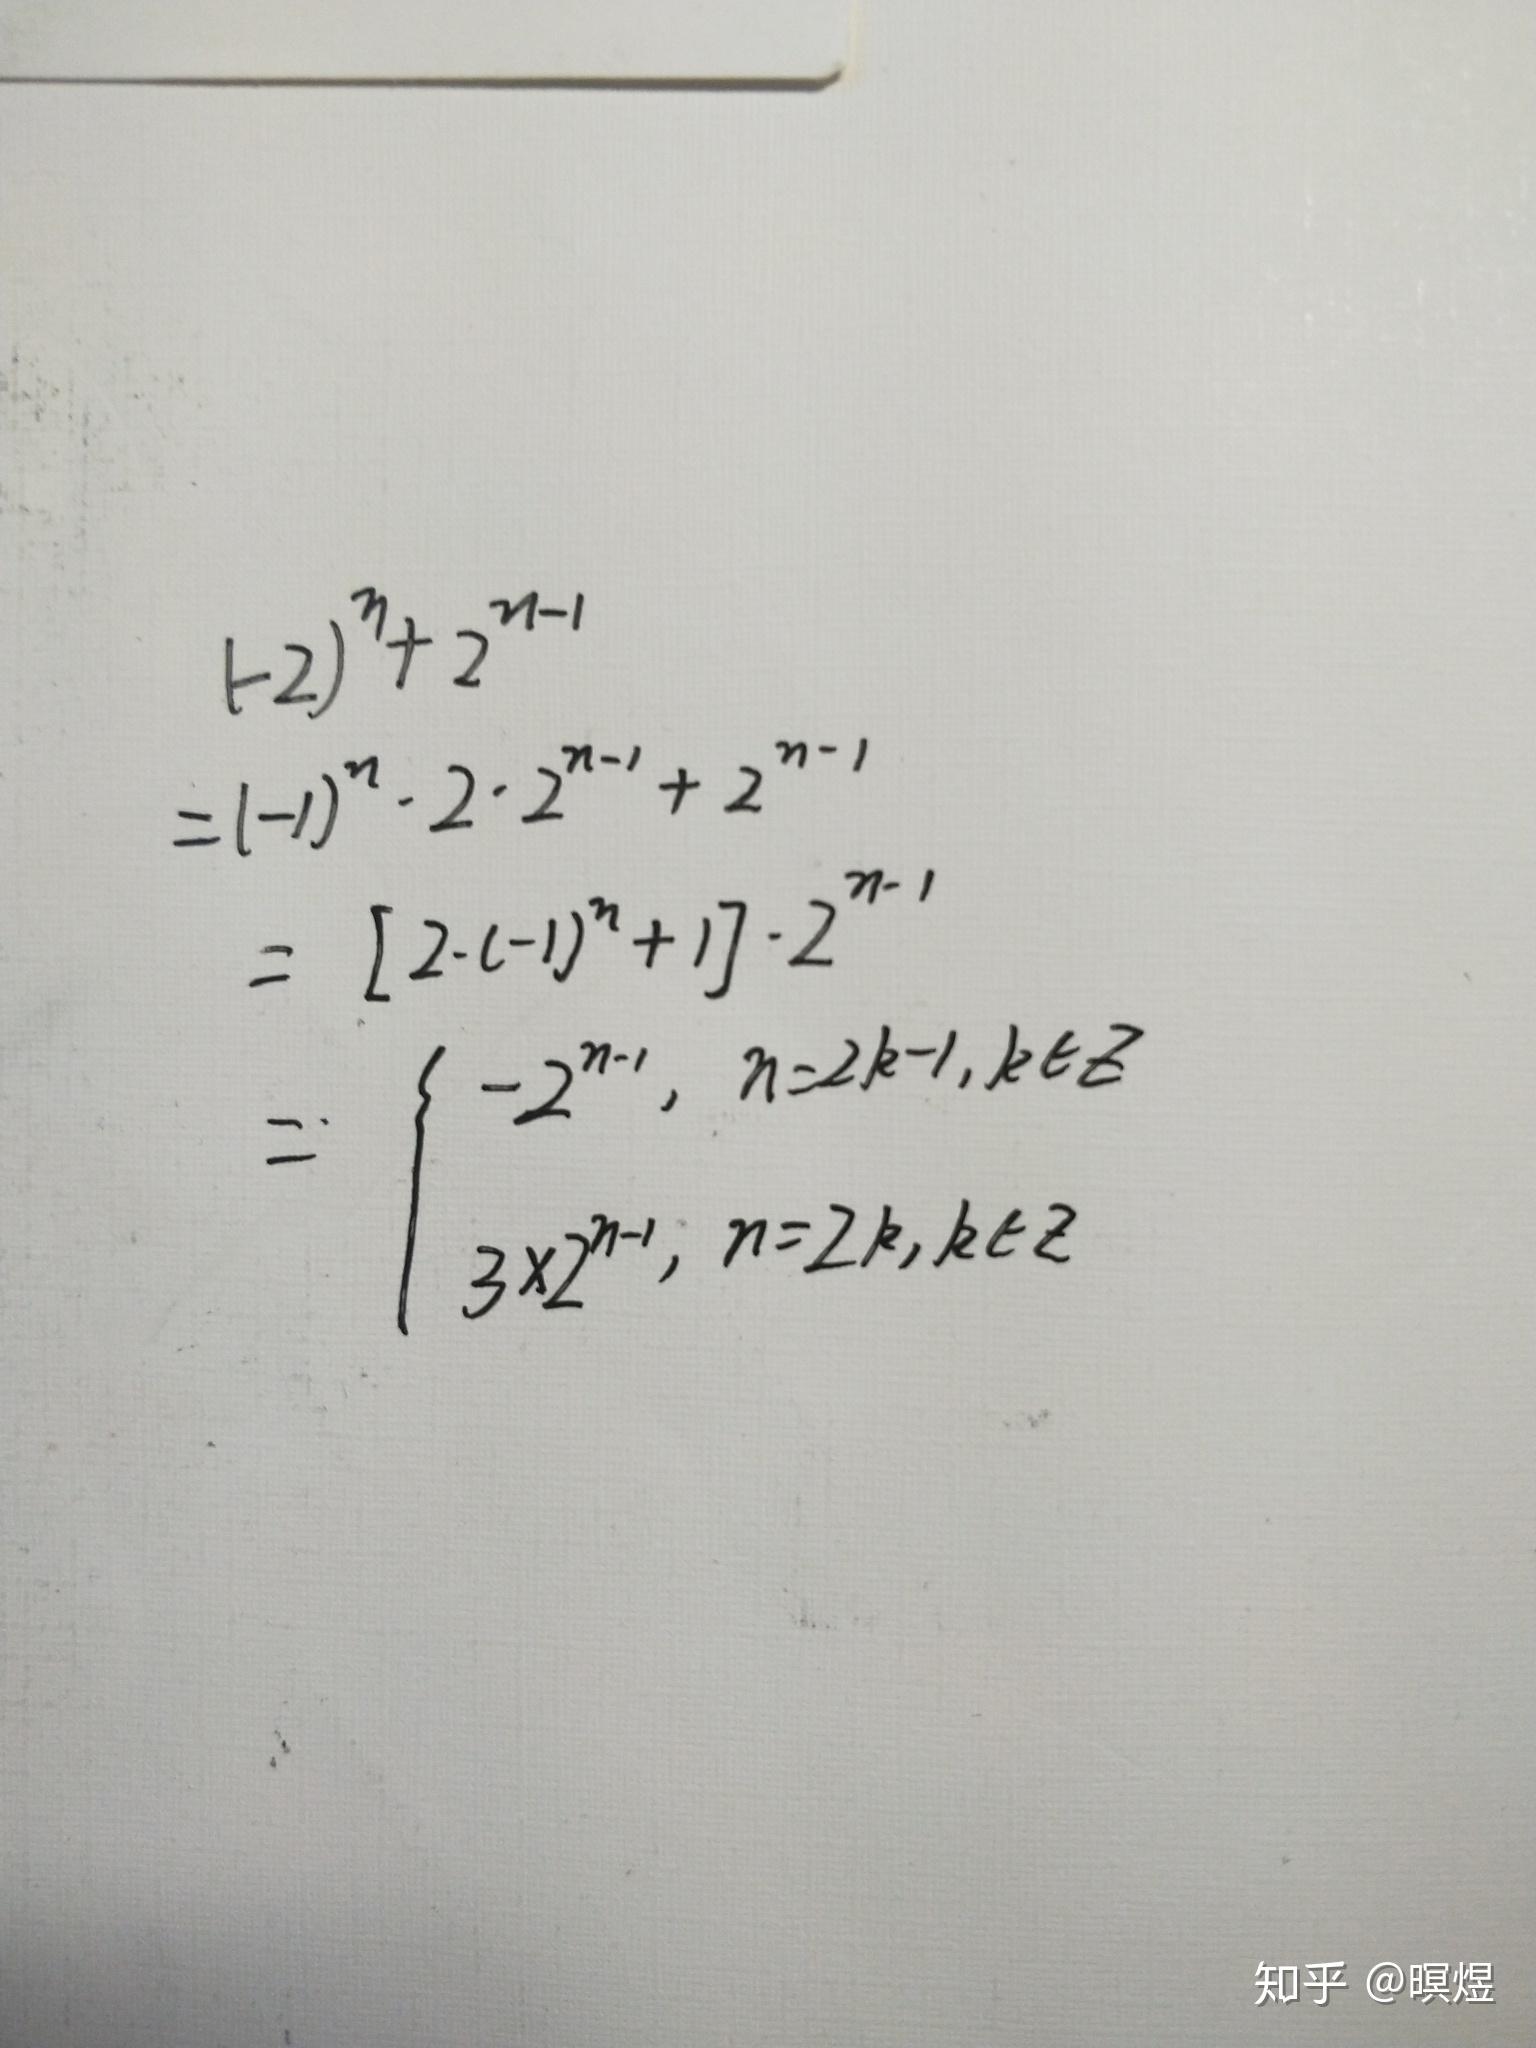 (-2)^n + 2^{n-1}
= (-1)^n · 2 · 2^{n-1} + 2^{n-1}
= [2·(-1)^n + 1] · 2^{n-1}
= { -2^{n-1}, n=2k-1, k∈Z
3×2^{n-1}, n=2k, k∈Z
知乎 @暝煜